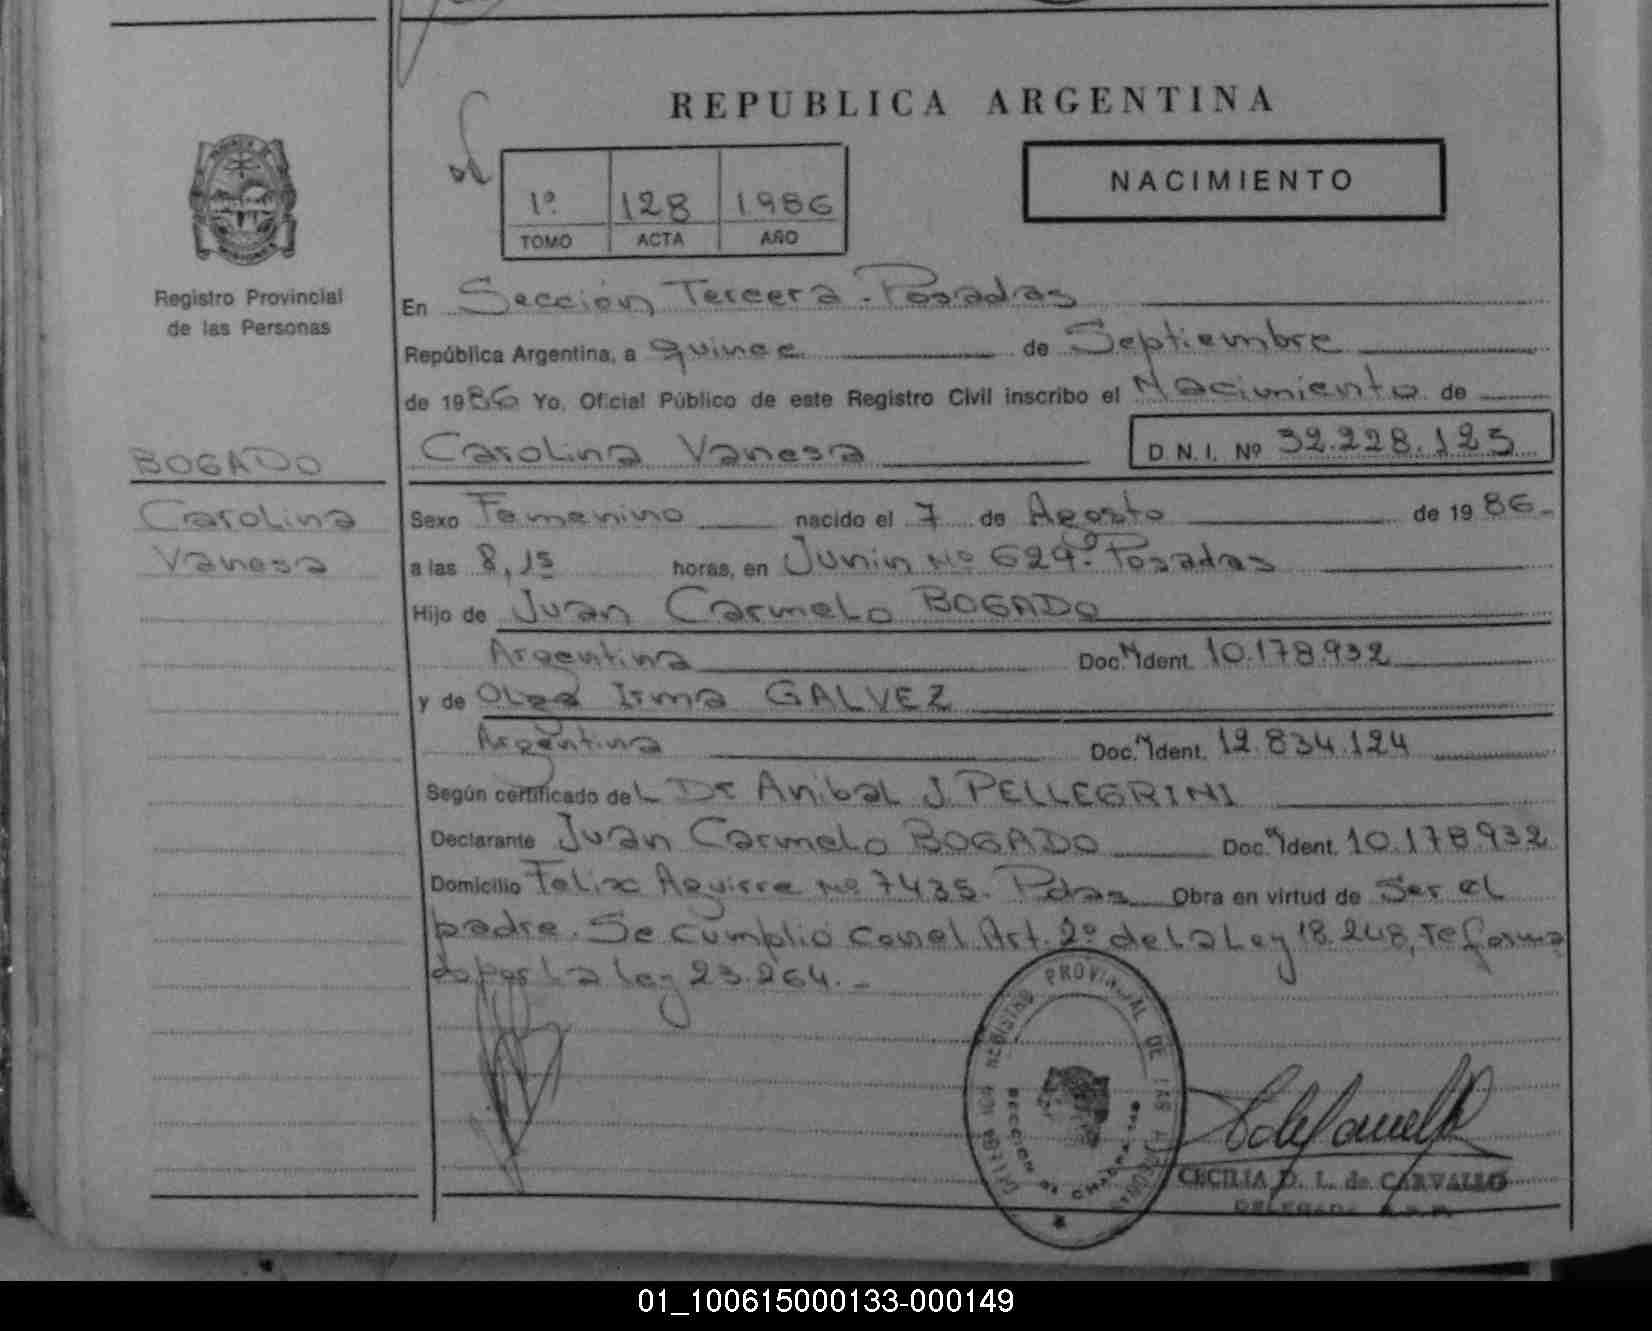 REPUBLICA ARGENTINA
NACIMIENTO
1º 128 1986
TOMO ACTA AÑO
Registro Provincial
de las Personas
En Sección Tercera - Posadas
República Argentina, a quince de Septiembre
de 1986 Yo, Oficial Público de este Registro Civil inscribo el Nacimiento de
Carolina Vanesa D.N.I. Nº 32.228.123
BOGADO
Carolina
Vanesa
Sexo Femenino nacido el 7 de Agosto de 1986.-
a las 8,15 horas, en Junin Nº 629. Posadas
Hijo de Juan Carmelo BOGADO
Argentina Doc. Ident. 10.178.932
y de Olga Irma GALVEZ
Argentina Doc. Ident. 12.834.124
Según certificado del Dr Anibal J. PELLEGRINI
Declarante Juan Carmelo BOGADO Doc. Ident. 10.178.932
Domicilio Felix Aguirre Nº 7435. Pdas Obra en virtud de Ser el
padre. Se cumplió con el Art. 2º de la Ley 18.248, reforma
do por La Ley 23.264.-
REGISTRO PROVINCIAL DE LAS PERSONAS
SECCION
CECILIA D. L. de CARVALLO
DELEGADA R.P.P.
01_100615000133-000149